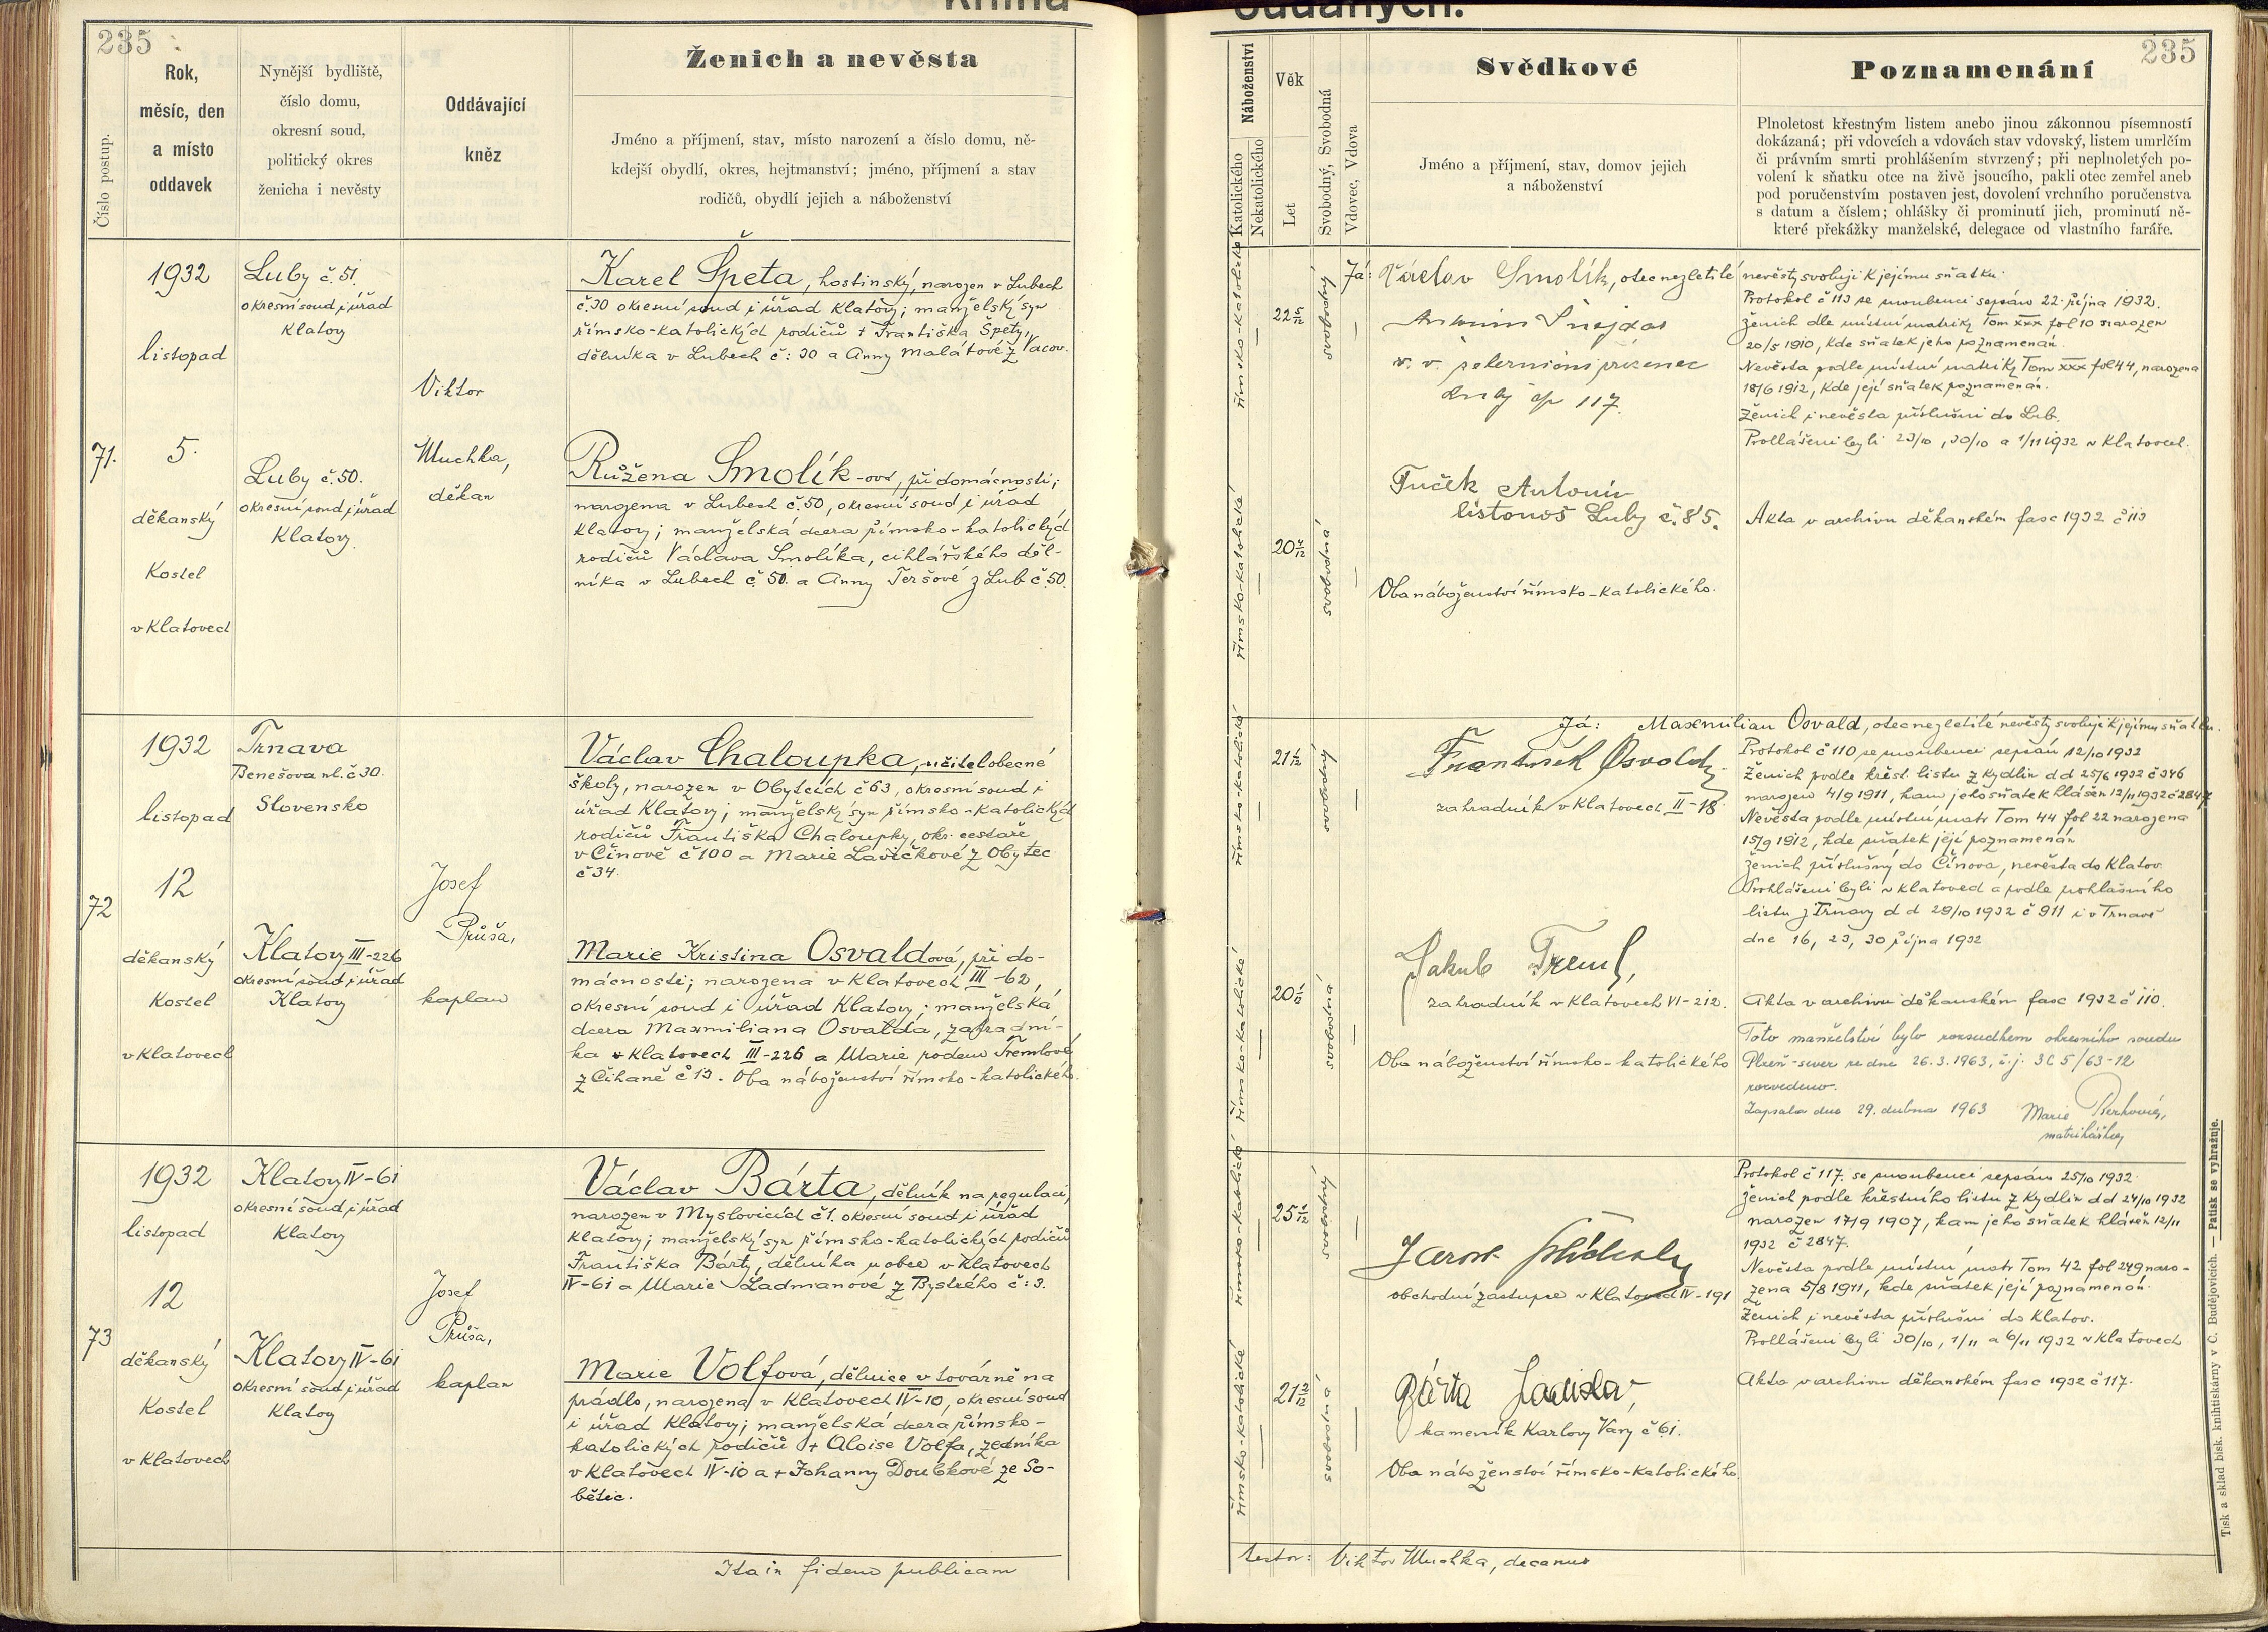 Kniha
oddaných.
235
235
Číslo postup.
Rok,
měsíc, den
a místo
oddavek
Nynější bydliště,
číslo domu,
okresní soud,
politický okres
ženicha i nevěsty
Oddávající
kněz
Ženich a nevěsta
Jméno a příjmení, stav, místo narození a číslo domu, ně-
kdejší obydlí, okres, hejtmanství; jméno, příjmení a stav
rodičů, obydlí jejich a náboženství
Náboženství
Katolického
Nekatolického
Věk
Let
Svobodný, Svobodná
Vdovec, Vdova
Svědkové
Jméno a příjmení, stav, domov jejich
a náboženství
Poznamenání
Plnoletost křestným listem anebo jinou zákonnou písemností
dokázaná; při vdovcích a vdovách stav vdovský, listem umrlčím
či právním smrti prohlášením stvrzený; při neplnoletých po-
volení k sňatku otce na živě jsoucího, pakli otec zemřel aneb
pod poručenstvím postaven jest, dovolení vrchního poručenstva
s datum a číslem; ohlášky či prominutí jich, prominutí ně-
které překážky manželské, delegace od vlastního faráře.
71.
1932
listopad
5.
děkanský
Kostel
v Klatovech
Luby č. 51.
okresní soud i úřad
Klatovy
Luby č. 50.
okresní soud i úřad
Klatovy.
Viktor
Muchka,
děkan
Karel Špeta, hostinský, narozen v Lubech
č. 30 okresní soud i úřad Klatovy; manželský syn
římsko-katolických rodičů † Františka Špety,
dělníka v Lubech č: 30 a Anny Malátové z Vacov.
Růžena Smolík-ová, při domácnosti;
narozena v Lubech č. 50, okresní soud i úřad
Klatovy; manželská dcera římsko-katolických
rodičů Václava Smolíka, cihlářského děl-
níka v Lubech č. 50. a Anny Teršové z Lub č. 50.
římsko-katolické
římsko-katolické
22 5/12
20 4/12
svobodný
svobodná
Já: Václav Smolík, otec nezletilé nevěsty svoluji k jejímu sňatku.
Antonín
117.
Tuček Antonín
listonoš Luby č. 85.
Oba náboženství římsko-katolického.
Protokol č 113 se snoubenci sepsán 22. října 1932.
Ženich dle místní matriky Tom XXX fol 10 narozen
20/5 1910, kde sňatek jeho poznamenán.
Nevěsta podle místní matriky Tom XXX fol 44, narozena
18/6 1912, kde její sňatek poznamenán.
Ženich i nevěsta příslušni do Lub.
Prohlášeni byli 23/10, 30/10 a 1/11 1932 v Klatovech.
Akta v archivu děkanském fasc 1932 č 113
72
1932
listopad
12
děkanský
Kostel
v Klatovech
Trnava
Benešova ul. č 30.
Slovensko
Klatovy III-226
okresní soud i úřad
Klatovy
Josef
Průša,
kaplan
Václav Chaloupka, učitel obecné
školy, narozen v Obytcích č 63, okresní soud i
úřad Klatovy; manželský syn římsko-katolických
rodičů Františka Chaloupky, okr. cestáře
v Činově č 100 a Marie Lavičkové z Obytec
č 34.
Marie Kristina Osvaldová, při do-
mácnosti; narozena v Klatovech III-62,
okresní soud i úřad Klatovy; manželská
dcera Maxmiliana Osvalda, zahradní-
ka v Klatovech III-226 a Marie rodem Tremlové
z Čihaně č 13. Oba náboženství římsko-katolického.
římsko-katolické
římsko-katolické
svobodný
svobodná
Já: Maxmilian Osvald, otec nezletilé nevěsty svoluji k jejímu sňatku.
František Osvald,
zahradník v Klatovech II-18.
Jakub Treml,
zahradník v Klatovech VI-212.
Oba náboženství římsko-katolického
Protokol č 110 se snoubenci sepsán 12/10 1932
Ženich podle křest. listu z Kydlin d d 25/6 1932 č 346
narozen 4/9 1911, kam jeho sňatek hlášen 12/11 1932 č 2847
Nevěsta podle místní matr Tom 44 fol 22 narozena
15/9 1912, kde sňatek její poznamenán
Ženich příslušný do Činova, nevěsta do Klatov
Prohlášeni byli v Klatovech a podle prohlašního
listu z Trnavy d d 29/10 1932 č 911 i v Trnavě
dne 16, 23, 30 října 1932
Akta v archivu děkanském fasc 1932 č 110.
Toto manželství bylo rozsudkem okresního soudu
Plzeň-sever ze dne 26.3.1963, č.j. 3C 5/63-12
rozvedeno.
Zapsala dne 29. dubna 1963 Marie
matrikářka
73
1932
listopad
12
děkanský
Kostel
v Klatovech
Klatovy IV-61
okresní soud i úřad
Klatovy
Klatovy IV-61
okresní soud i úřad
Klatovy
Josef
Průša,
kaplan
Václav Bárta, dělník na regulaci,
narozen v Myslovicích č 1. okresní soud i úřad
Klatovy; manželský syn římsko-katolických rodičů
Františka Bárty, dělníka u obce v Klatovech
IV-61 a Marie Ladmanové z Bystrého č: 3.
Marie Volfová, dělnice v továrně na
prádlo, narozena v Klatovech IV-10, okresní soud
i úřad Klatovy; manželská dcera římsko-
katolických rodičů † Aloise Volfa, zedníka
v Klatovech IV-10 a † Johanny Doubkové ze So-
bětic.
římsko-katolické
římsko-katolické
svobodný
svobodná
Jarosl.
obchodní zástupce v Klatovech IV-191
Bárta Ladislav,
kameník Karlovy Vary č 61.
Oba náboženství římsko-katolického.
Protokol č 117. se snoubenci sepsán 25/10 1932.
Ženich podle křestního listu z Kydlin d d 24/10 1932
narozen 17/9 1907, kam jeho sňatek hlášen 12/11
1932 č 2847.
Nevěsta podle místní matr Tom 42 fol 249 naro-
zena 5/8 1911, kde sňatek její poznamenán.
Ženich i nevěsta příslušni do Klatov.
Prohlášeni byli 30/10, 1/11 a 6/11 1932 v Klatovech
Akta v archivu děkanském fasc 1932 č 117.
Ita in fidem publicam
testor: Viktor Muchka, decanus
Tisk a sklad bisk. knihtiskárny v Č. Budějovicích. — Patisk se vyhražuje.